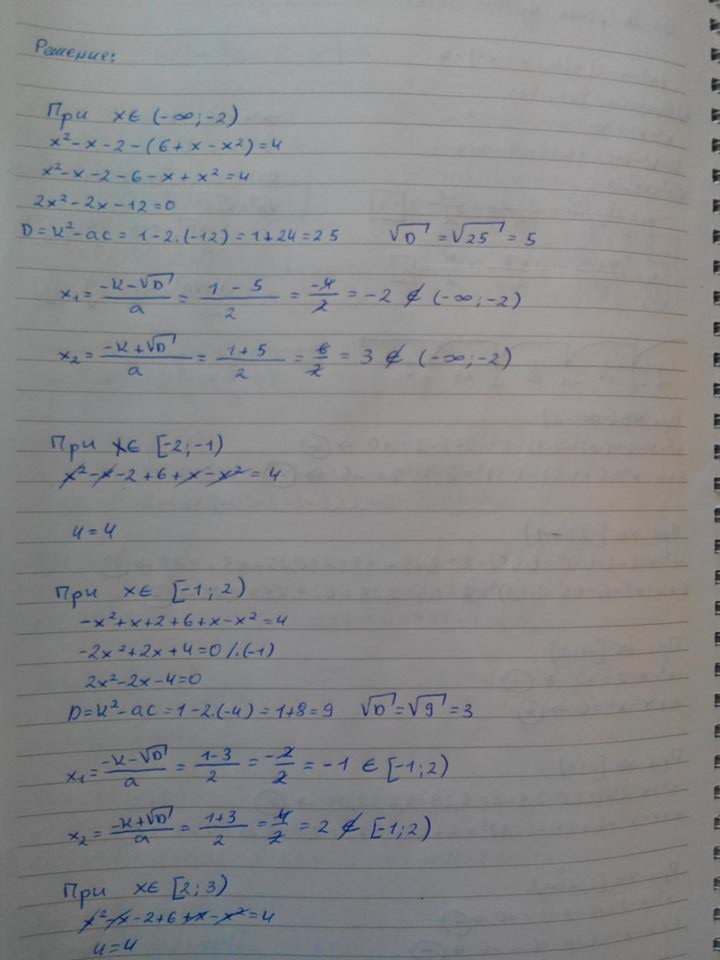 Решение:
При x∈ (-∞; -2)
x²-x-2-(6+x-x²)=4
x²-x-2-6-x+x²=4
2x²-2x-12=0
D=k²-ac=1-2.(-12)=1+24=25 √D=√25=5
x₁=(-k-√D)/a=(1-5)/2=-4/2=-2 ∉ (-∞; -2)
x₂=(-k+√D)/a=(1+5)/2=6/2=3 ∉ (-∞; -2)
При x∈ [-2; -1)
x²-x-2+6+x-x²=4
4=4
При x∈ [-1; 2)
-x²+x+2+6+x-x²=4
-2x²+2x+4=0/.(-1)
2x²-2x-4=0
D=k²-ac=1-2.(-4)=1+8=9 √D=√9=3
x₁=(-k-√D)/a=(1-3)/2=-2/2=-1 ∈ [-1; 2)
x₂=(-k+√D)/a=(1+3)/2=4/2=2 ∉ [-1; 2)
При x∈ [2; 3)
x²-x-2+6+x-x²=4
4=4